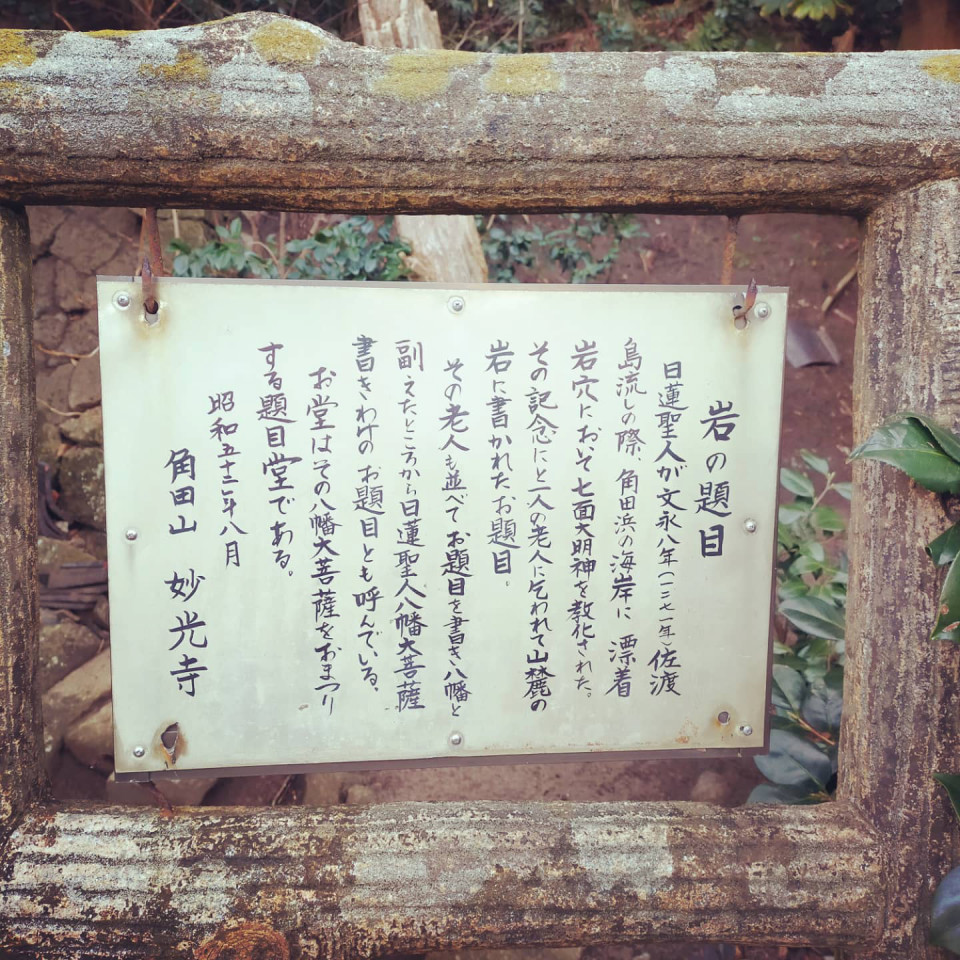 岩の題目
日蓮聖人が文永八年(一二七一年)佐渡
島流しの際、角田浜の海岸に漂着
岩穴においそ七面大明神を教化された。
その記念にと一人の老人に乞われて山麓の
岩に書かれたお題目。
その老人も並べてお題目を書き八幡と
副えたところから日蓮聖人八幡大菩薩
書きわけのお題目とも呼んでいる。
お堂はその八幡大菩薩をおまつり
する題目堂である。
昭和五十二年八月
角田山 妙光寺